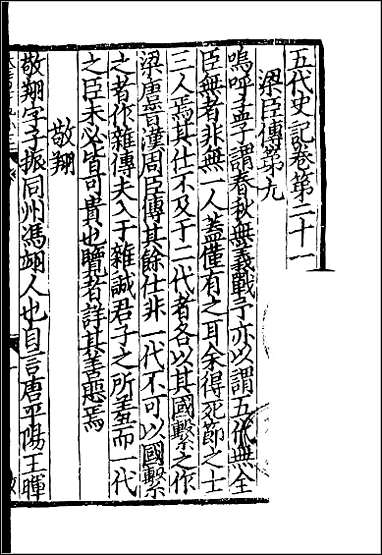 五代史記卷第二十一
梁臣傳第九
嗚呼孟子謂春秋無義戰予亦以謂五代無全
臣無者非無一人蓋僅有之耳余得死節之士
三人焉其仕不及于二代者各以其國繫之作
梁唐晉漢周臣傳其餘仕非一代不可以國繫
之者作雜傳夫入于雜誠君子之所羞而一代
之臣未必皆可貴也覽者詳其善惡焉
敬翔
敬翔字子振同州馮翊人也自言唐平陽王暉